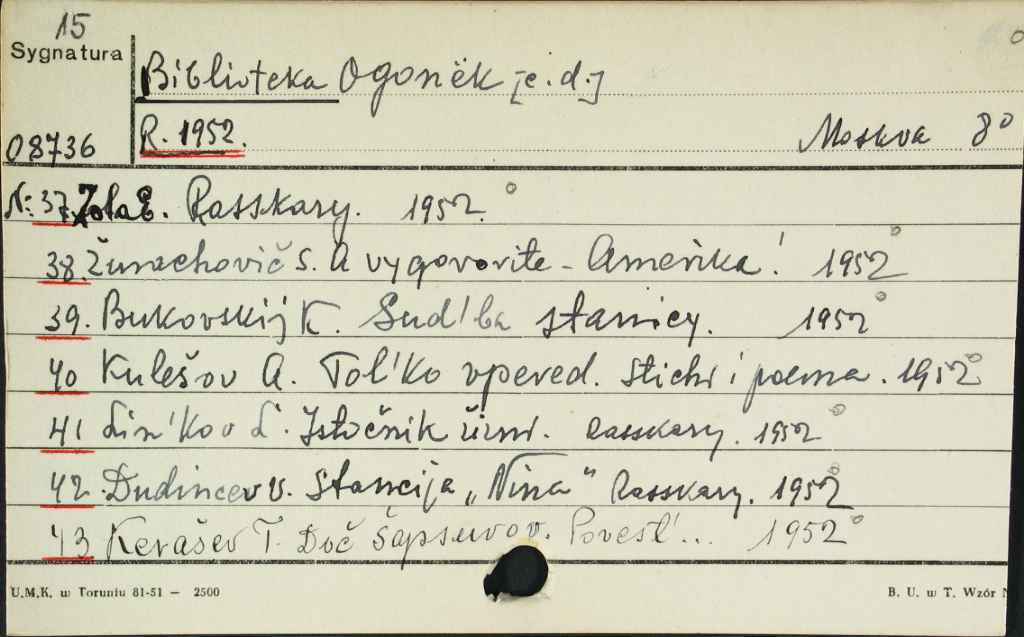 15
Sygnatura
Biblioteka Ogonëk [c.d.]
08736 R. 1952. Moskva 8°
N: 37. Zola E. Rasskazy. 1952.°
38. Žurachovič S. A vy govorite - Amerika! 1952°
39. Bukovskij K. Sud'ba stanicy. 1952°
40 Kulešov A. Tol'ko vpered. Stichi i poema. 1952°
41 Lin'kov L. Istočnik žizni. Rasskazy. 1952°
42. Dudincev V. Stancija „Nina" Rasskazy. 1952°
43 Kerašev T. Doč Šapsugov. Povest'... 1952°
U.M.K. w Toruniu 81-51 — 2500 B. U. w T. Wzór